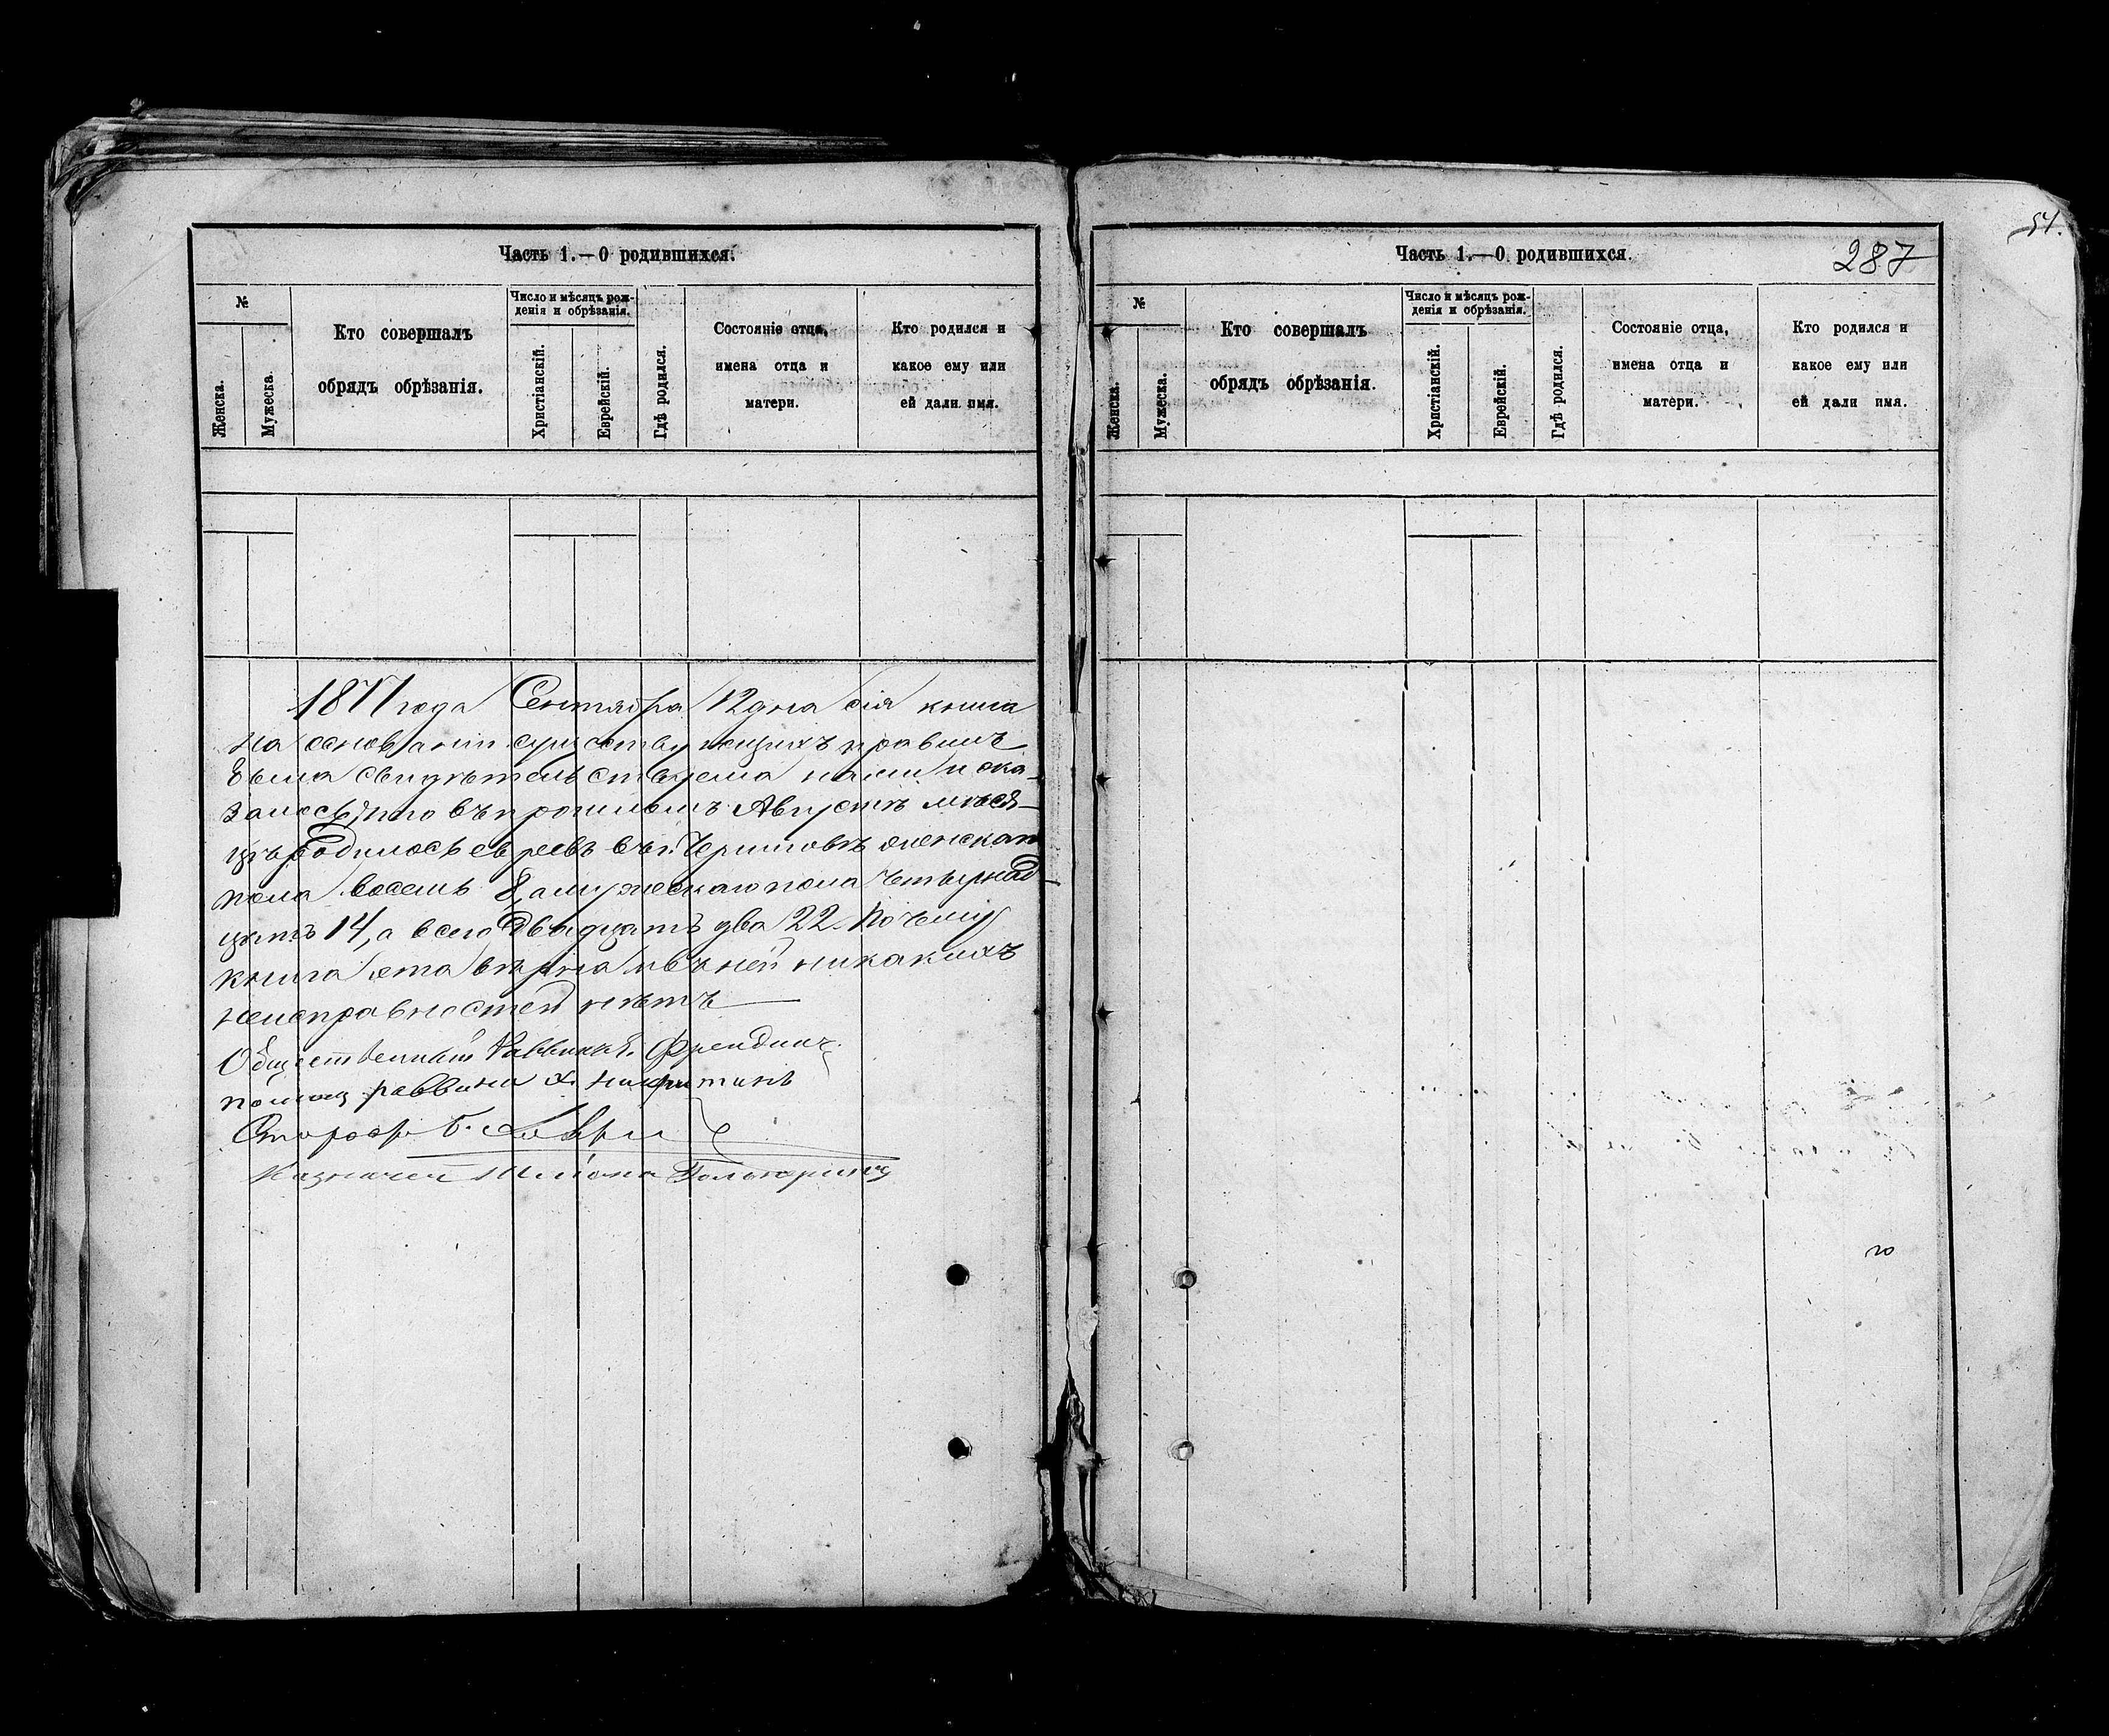 Часть 1.—О родившихся.
№
Женска.
Мужеска.
Кто совершалъ
обрядъ обрѣзанія.
Число и мѣсяцъ рож-
денія и обрѣзанія.
Христіанскій.
Еврейскій.
Гдѣ родился.
Состояніе отца,
имена отца и
матери.
Кто родился и
какое ему или
ей дали имя.
1877 года Сентября 12 дня сія книга
на основаніи существующихъ правилъ
была свидѣтельствуема нами и ока-
залось, что въ прошломъ Августѣ мѣся-
цѣ родилось евреевъ въ г. Черниговѣ женскаго
пола восемь 8, а мужескаго пола четырнад-
цать 14, а всего двадцать два 22. Почему
книга эта вѣрна и въ ней никакихъ
неисправностей нѣтъ
Общественный Раввинъ Фрейдинъ
помощ раввина Х.
Староста Б.
Казначей
Часть 1.—О родившихся.
287
54.
№
Женска.
Мужеска.
Кто совершалъ
обрядъ обрѣзанія.
Число и мѣсяцъ рож-
денія и обрѣзанія.
Христіанскій.
Еврейскій.
Гдѣ родился.
Состояніе отца,
имена отца и
матери.
Кто родился и
какое ему или
ей дали имя.